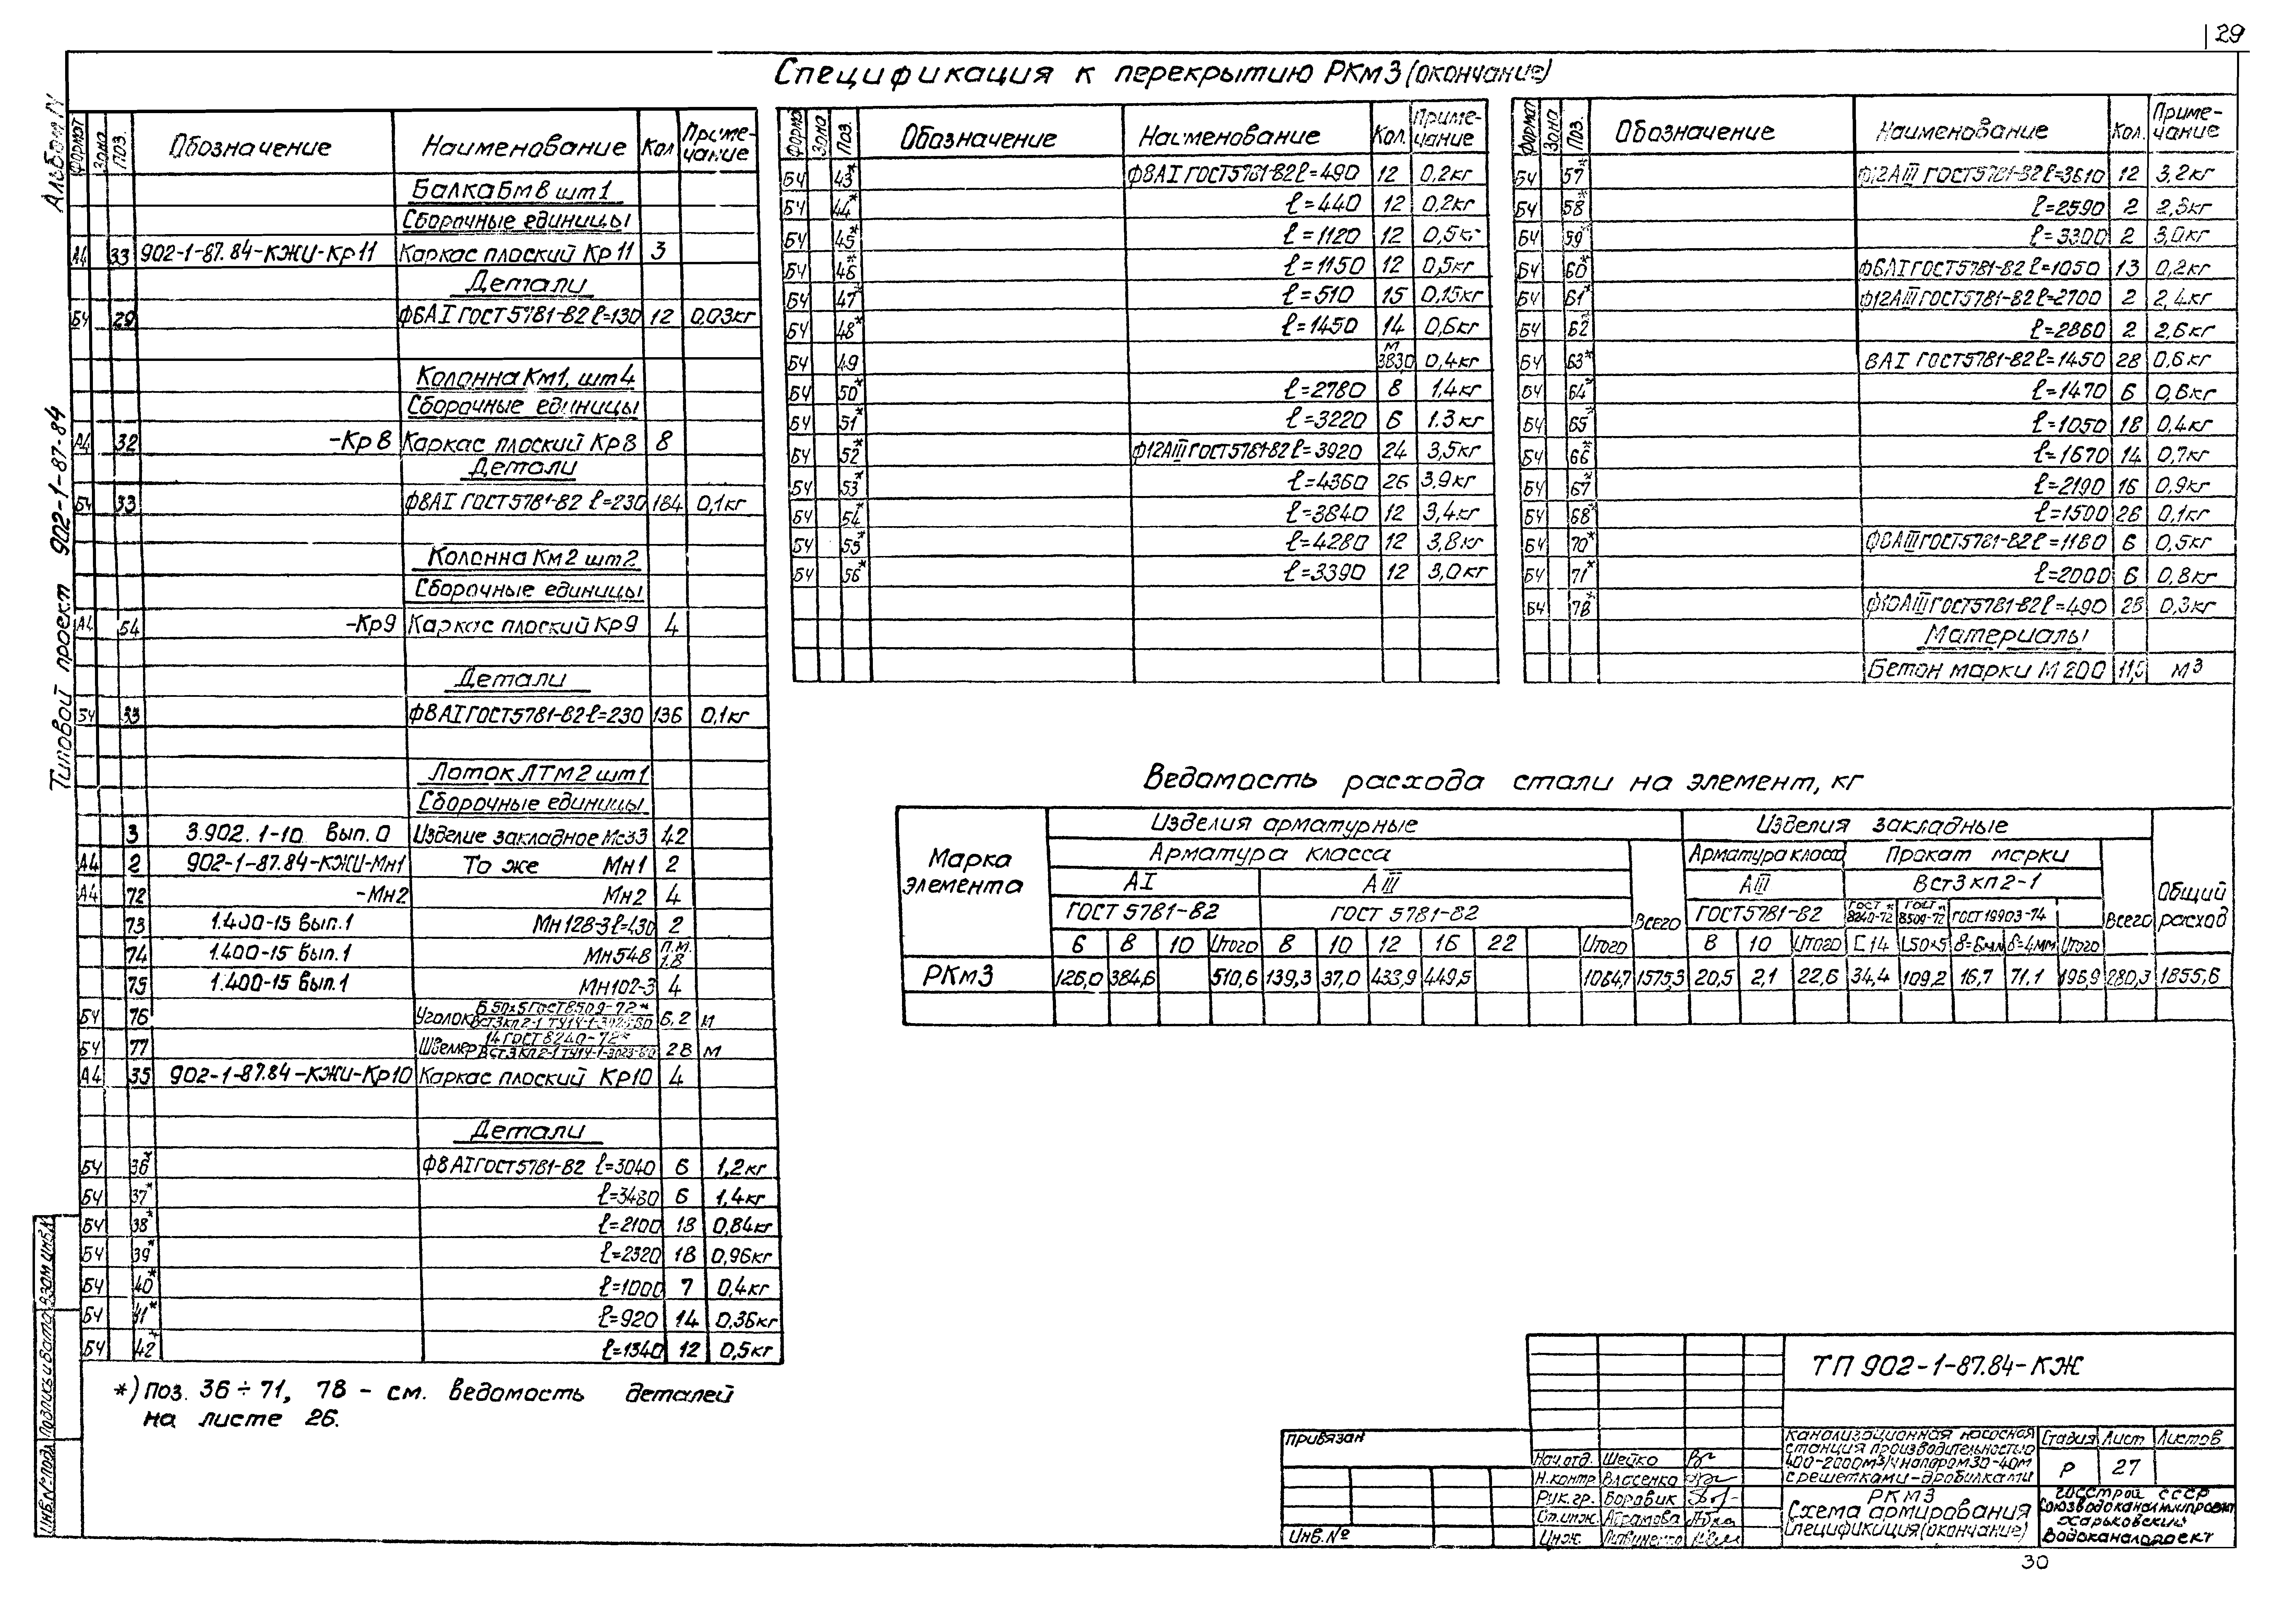 29
Спецификация к перекрытию РКм3 (окончание)
Альбом IV
Типовой проект 902-1-87-84
Формат Зона Поз. Обозначение Наименование Кол Приме-чание
Балка Бм8 шт1
Сборочные единицы
А4 33 902-1-87.84-КЖИ-Кр11 Каркас плоский Кр11 3
Детали
БЧ 29 Ф6АI ГОСТ5781-82 ℓ=130 12 0,03кг
Колонна Км1, шт4
Сборочные единицы
А4 32 -Кр8 Каркас плоский Кр8 8
Детали
БЧ 33 Ф8АI ГОСТ5781-82 ℓ=230 184 0,1кг
Колонна Км2 шт2
Сборочные единицы
А4 54 -Кр9 Каркас плоский Кр9 4
Детали
БЧ 33 Ф8АI ГОСТ5781-82 ℓ=230 136 0,1кг
Лоток ЛТм2 шт1
Сборочные единицы
3 3.902.1-10 вып.0 Изделие закладное Мс33 42
А4 2 902-1-87.84-КЖИ-Мн1 То же Мн1 2
А4 72 -Мн2 Мн2 4
73 1.400-15 вып.1 Мн128-3 ℓ=430 2
74 1.400-15 вып.1 Мн548 п.м. 1,8
75 1.400-15 вып.1 МН102-3 4
БЧ 76 Уголок Б50х5 ГОСТ8509-72* ВСт3кп2-1 ТУ14-1-3023-80 6,2 м
БЧ 77 Швеллер 14 ГОСТ 8240-72* ВСт3кп2-1 ТУ14-1-3023-80 28 м
А4 35 902-1-87.84-КЖИ-Кр10 Каркас плоский КР10 4
Детали
БЧ 36* Ф8АI ГОСТ5781-82 ℓ=3040 6 1,2кг
БЧ 37* ℓ=3480 6 1,4кг
БЧ 38* ℓ=2100 18 0,84кг
БЧ 39* ℓ=2320 18 0,96кг
БЧ 40* ℓ=1000 7 0,4кг
БЧ 41* ℓ=920 14 0,36кг
БЧ 42* ℓ=1340 12 0,5кг
*) Поз. 36÷71, 78 - см. ведомость деталей
на листе 26.
Формат Зона Поз. Обозначение Наименование Кол. Приме-чание
БЧ 43* Ф8АI ГОСТ5781-82 ℓ=490 12 0,2кг
БЧ 44* ℓ=440 12 0,2кг
БЧ 45* ℓ=1120 12 0,5кг
БЧ 46* ℓ=1150 12 0,5кг
БЧ 47* ℓ=510 15 0,15кг
БЧ 48* ℓ=1450 14 0,6кг
БЧ 49 м 3830 0,4кг
БЧ 50* ℓ=2780 8 1.4кг
БЧ 51* ℓ=3220 6 1.3кг
БЧ 52* Ф12АIII ГОСТ5781-82 ℓ=3920 24 3,5кг
БЧ 53* ℓ=4360 26 3,9кг
БЧ 54* ℓ=3840 12 3,4кг
БЧ 55* ℓ=4280 12 3,8кг
БЧ 56* ℓ=3390 12 3,0кг
Формат Зона Поз. Обозначение Наименование Кол. Приме-чание
БЧ 57* Ф12АIII ГОСТ5781-82 ℓ=3610 12 3,2кг
БЧ 58* ℓ=2590 2 2,3кг
БЧ 59* ℓ=3300 2 3,0кг
БЧ 60* Ф6АI ГОСТ5781-82 ℓ=1050 13 0,2кг
БЧ 61* Ф12АIII ГОСТ5781-82 ℓ=2700 2 2,4кг
БЧ 62* ℓ=2860 2 2,6кг
БЧ 63* 8АI ГОСТ5781-82 ℓ=1450 28 0,6кг
БЧ 64* ℓ=1470 6 0,6кг
БЧ 65* ℓ=1050 18 0,4кг
БЧ 66* ℓ=1670 14 0,7кг
БЧ 67* ℓ=2190 16 0,9кг
БЧ 68* ℓ=1500 26 0,1кг
БЧ 70* Ф8АIII ГОСТ5781-82 ℓ=1180 6 0,5кг
БЧ 71* ℓ=2000 6 0,8кг
БЧ 78* Ф10АIII ГОСТ5781-82 ℓ=490 28 0,3кг
Материалы
Бетон марки М200 11,5 м3
Ведомость расхода стали на элемент, кг
Марка элемента Изделия арматурные Изделия закладные Общий расход
Арматура класса Всего Арматура класса Прокат марки Всего
АI АIII АIII ВСт3кп2-1
ГОСТ 5781-82 ГОСТ 5781-82 ГОСТ5781-82 ГОСТ* 8240-72 ГОСТ* 8509-72 ГОСТ 19903-74
6 8 10 Итого 8 10 12 16 22 Итого 8 10 Итого С14 L50х5 δ=6мм δ=4мм Итого
РКм3 126,0 384,6 510,6 139,3 37,0 433,9 449,5 1064,7 1575,3 20,5 2,1 22,6 34,4 109,2 16,7 71,1 196,9 280,3 1855,6
Инв.№ подл. Подпись и дата Взам.инв.№
Привязан
Инв.№
Нач.отд. Шейко
Н.контр. Власенко
Рук.гр. Боровик
Ст.инж. Абрамова
Инж. Литвиненко
ТП 902-1-87.84-КЖ
Канализационная насосная
станция производительностью
400-2000м3/ч напором 30-40м
с решетками-дробилками
Стадия Лист Листов
Р 27
РКМ3
Схема армирования
Спецификация (окончание)
Госстрой СССР
Союзводоканалниипроект
Харьковский
Водоканалпроект
30